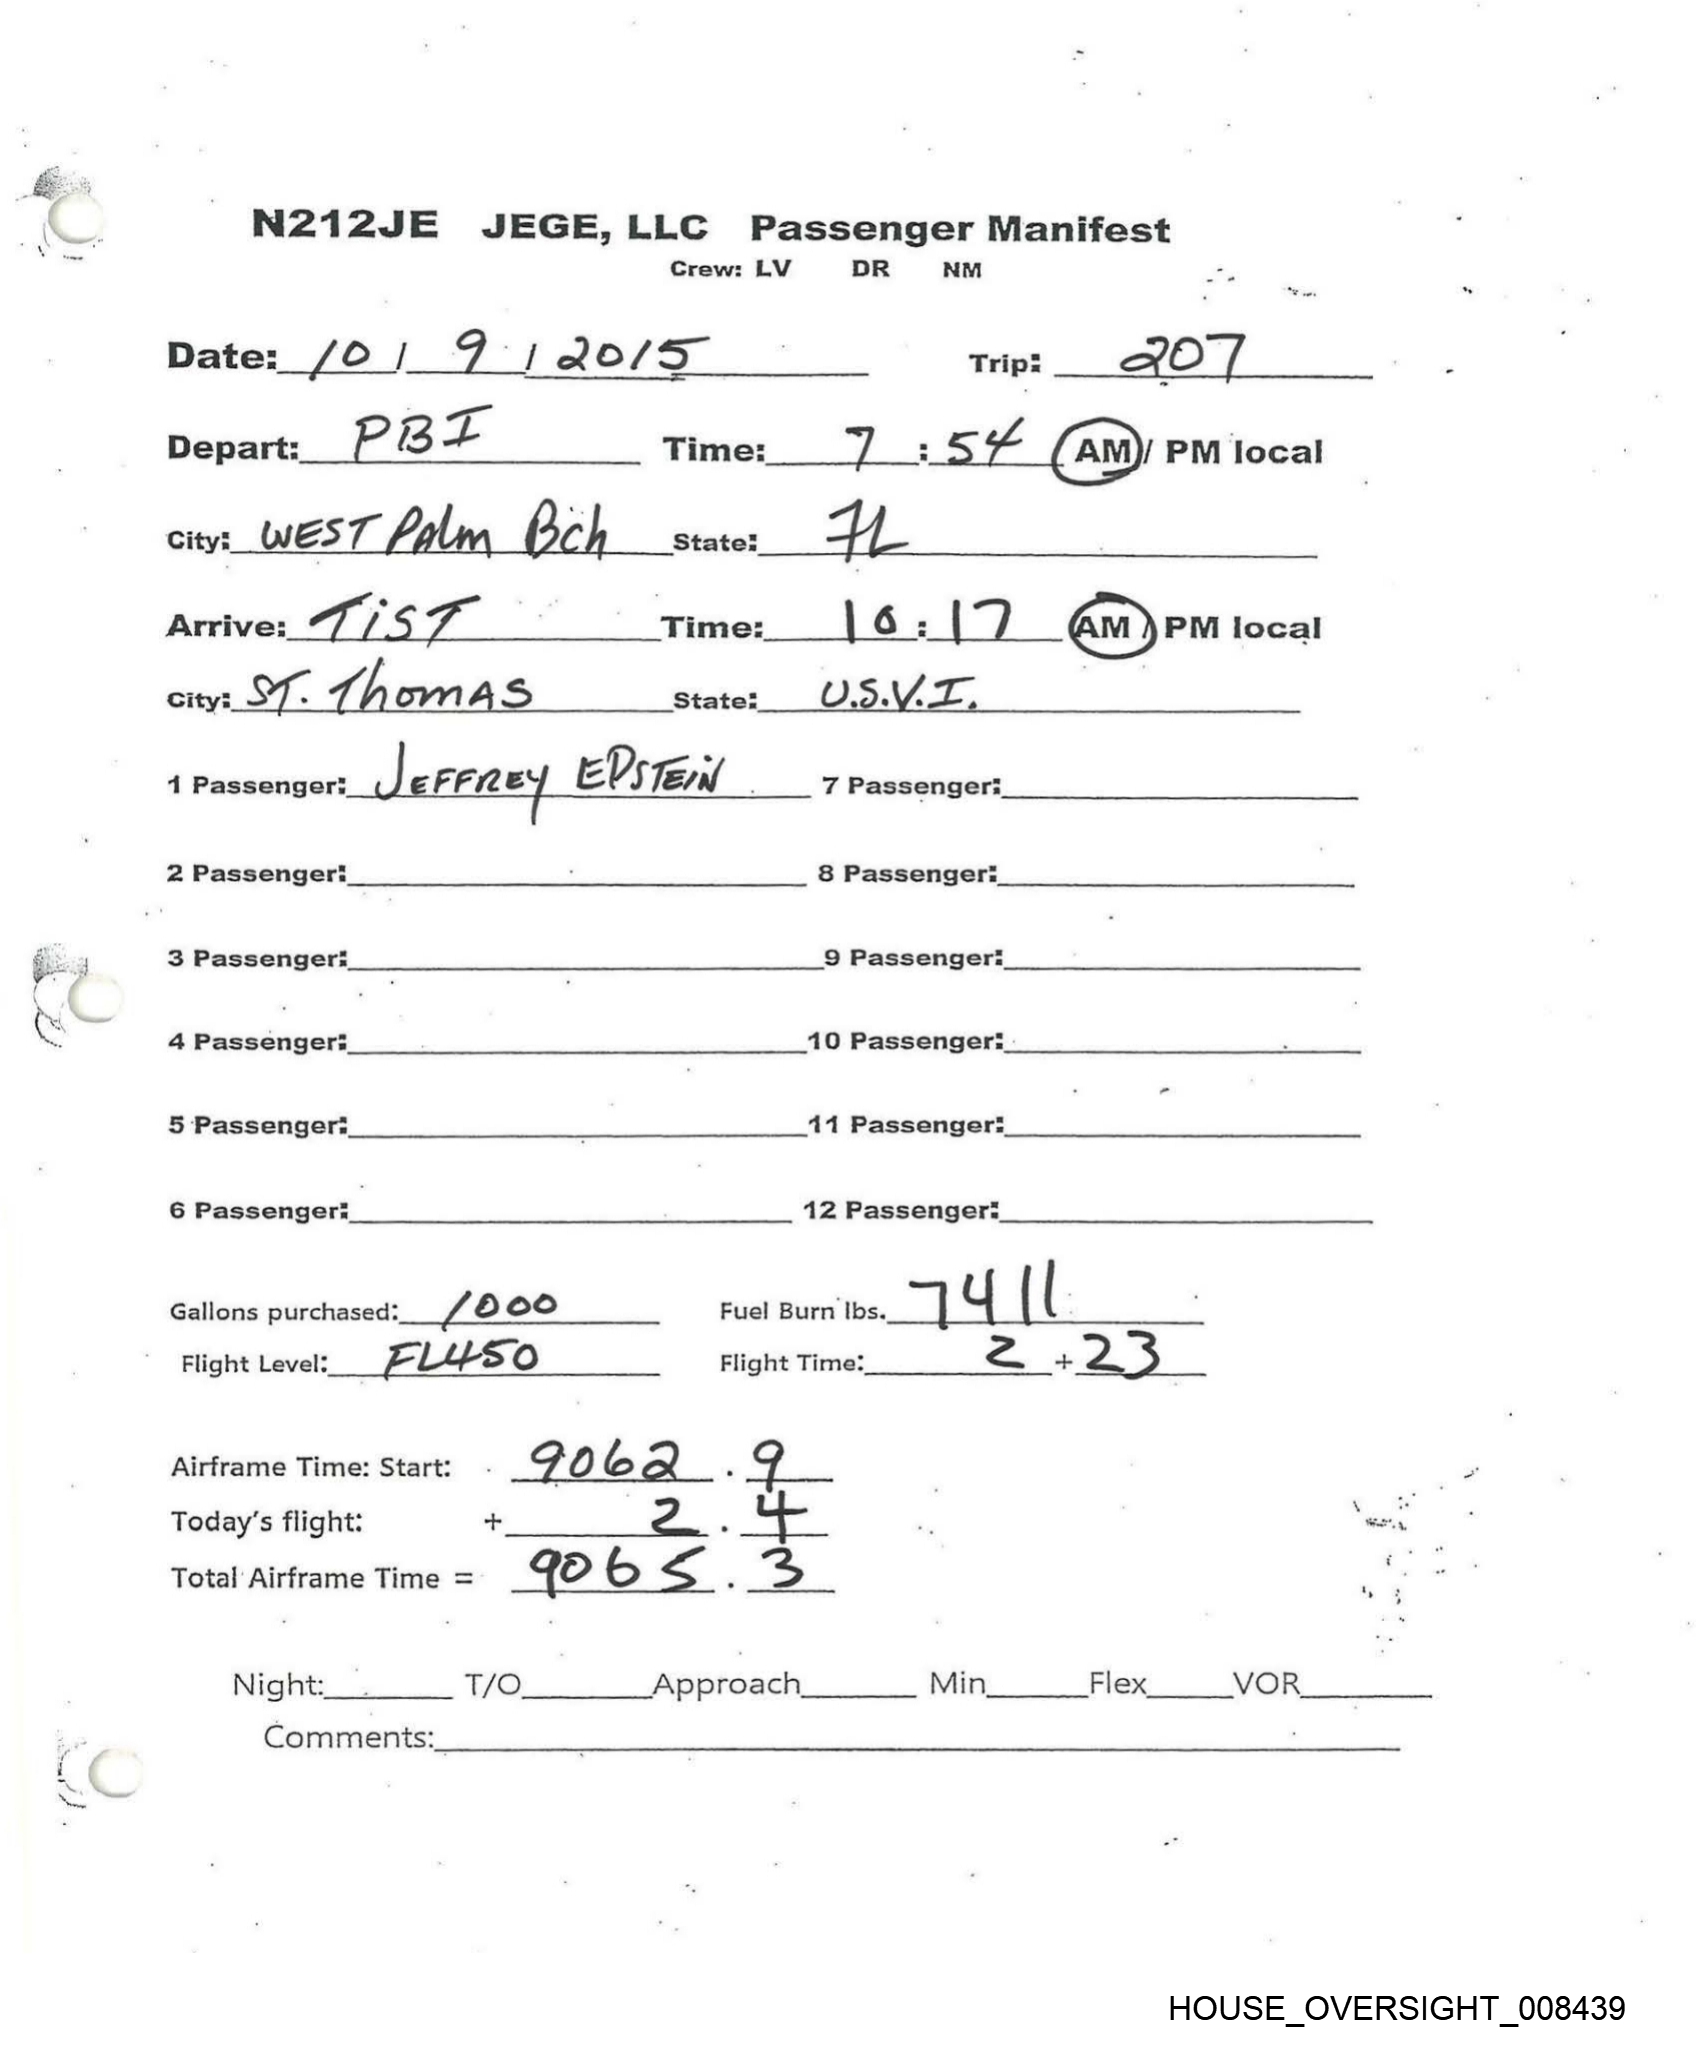 N212JE JEGE, LLC Passenger Manifest
Crew: LV DR NM
Date: 10 / 9 / 2015 Trip: 207
Depart: PBI Time: 7 : 54 AM / PM local
City: WEST PAlm Bch State: FL
Arrive: TiST Time: 10 : 17 AM / PM local
City: ST. ThomAS State: U.S.V.I.
1 Passenger: JEFFREY EPSTEiN 7 Passenger:
2 Passenger: 8 Passenger:
3 Passenger: 9 Passenger:
4 Passenger: 10 Passenger:
5 Passenger: 11 Passenger:
6 Passenger: 12 Passenger:
Gallons purchased: 1000 Fuel Burn lbs. 7411
Flight Level: FL450 Flight Time: 2 + 23
Airframe Time: Start: 9062 . 9
Today's flight: + 2 . 4
Total Airframe Time = 9065 . 3
Night: T/O Approach Min Flex VOR
Comments:
HOUSE_OVERSIGHT_008439